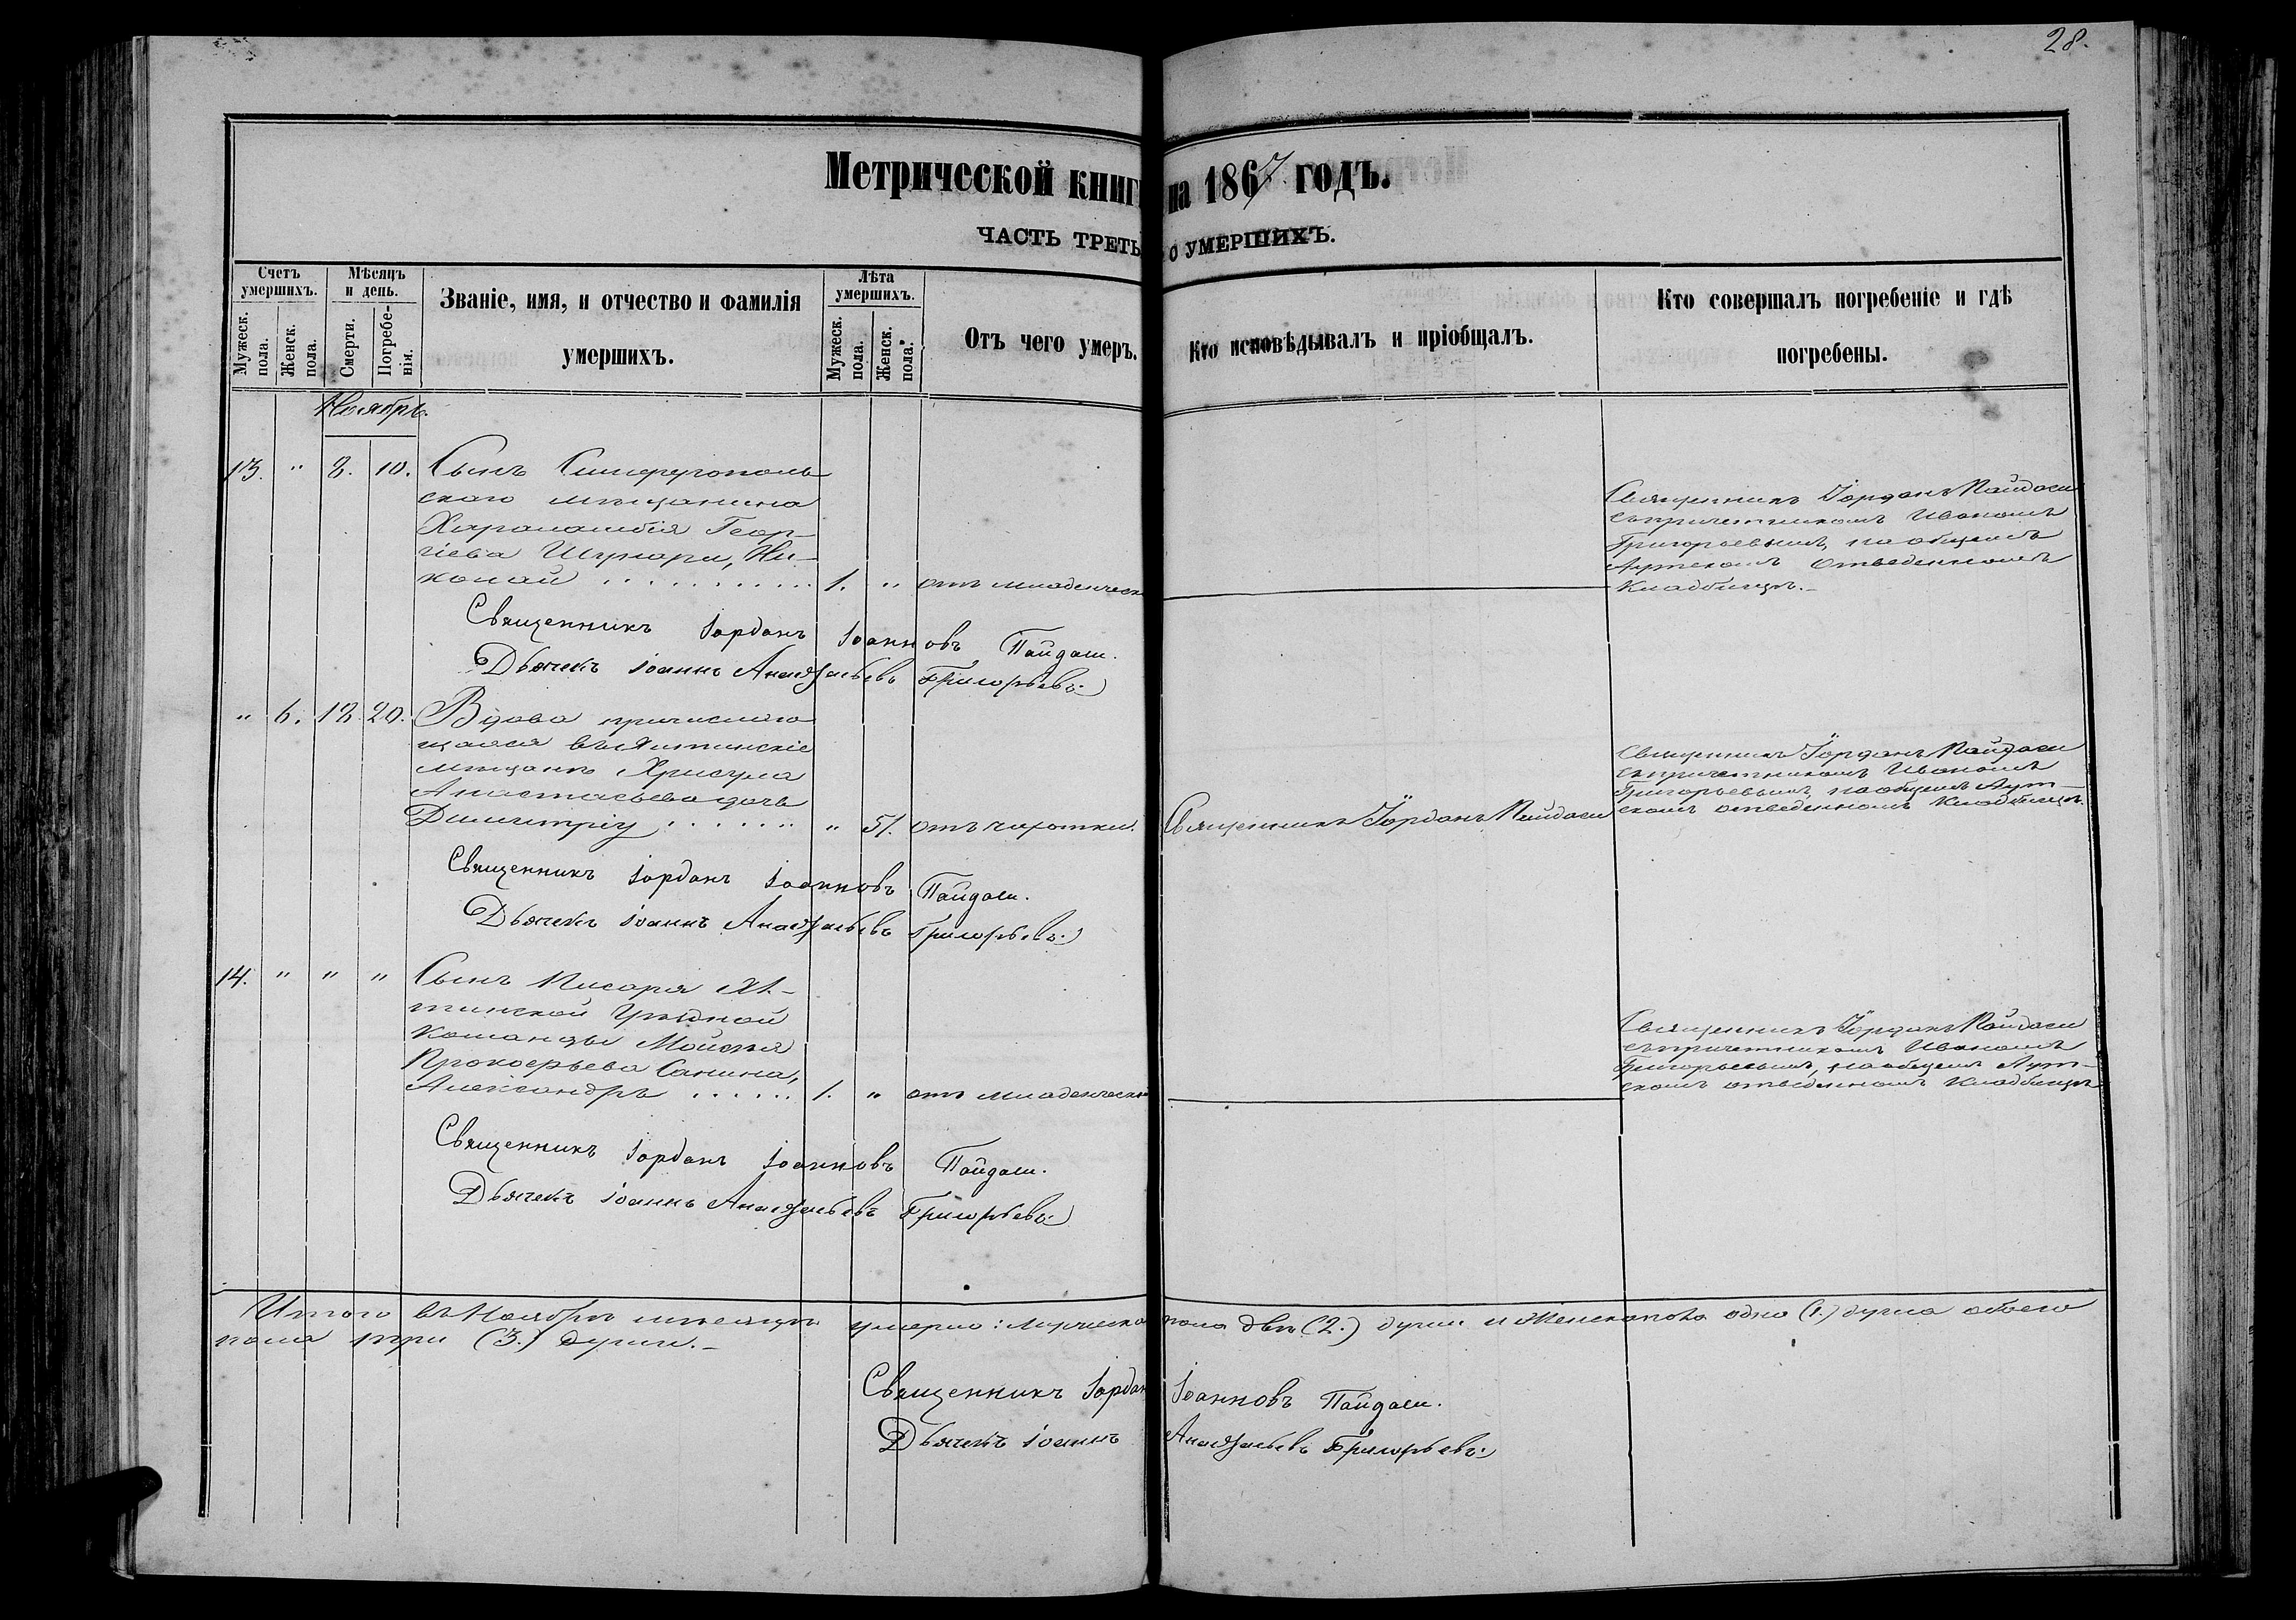 28.
Метрической книг на 1867 годъ.
ЧАСТЬ ТРЕТЬ О УМЕРШИХЪ.
Счетъ умершихъ.
Мужеск. пола.
Женск. пола.
Мѣсяцъ и день.
Смерти.
Погребе-нія.
Званіе, имя, и отчество и фамилія
умершихъ.
Лѣта умершихъ.
Мужеск. пола.
Женск. пола.
Отъ чего умеръ.
Кто исповѣдывалъ и пріобщалъ.
Кто совершалъ погребеніе и гдѣ
погребены.
Ноябрь.
13. " 8. 10. Сынъ Симферополь
скаго мѣщанина
Харалампія Геор-
гіева Шунари, Ни-
колай . . . . . . . . . . 1. " отъ младенческ
Священникъ Іорданъ Пайдаси
съ причетникомъ Иваномъ
Григорьевымъ, на общемъ
Аутскомъ отведенномъ
кладбищѣ.-
Священникъ Іорданъ Іоанновъ Пайдаси.
Дьячекъ Іоаннъ Анастасьевъ Григорьевъ
" 6. 18. 20. Вдова причисляю
щаяся въ Ялтинскіе
мѣщане Хрисула
Анастасьева дочь
Димитріу . . . . . . " 51. отъ чахотки. Священникъ Іорданъ Пайдаси
Священникъ Іорданъ Пайдаси
съ причетникомъ Иваномъ
Григорьевымъ, на общемъ Аут-
скомъ отведенномъ кладбищѣ.
Священникъ Іорданъ Іоанновъ Пайдаси.
Дьячекъ Іоаннъ Анастасьевъ Григорьевъ
14. " " " Сынъ Писаря Ял-
тинской Уѣздной
команды Моисея
Прокофьева Санина,
Александръ . . . . . . 1. " отъ младенческ
Священникъ Іорданъ Пайдаси
съ причетникомъ Иваномъ
Григорьевымъ, на общемъ Аут-
скомъ отведенномъ кладбищѣ
Священникъ Іорданъ Іоанновъ Пайдаси.
Дьячекъ Іоаннъ Анастасьевъ Григорьевъ
Итого въ Ноябрѣ мѣсяцѣ умерло: мужеска пола двѣ (2.) души и женска пола одна (1.) душа обоего
пола три (3.) души.-
Священникъ Іордан Іоанновъ Пайдаси.
Дьячекъ Іоаннъ Анастасьевъ Григорьевъ